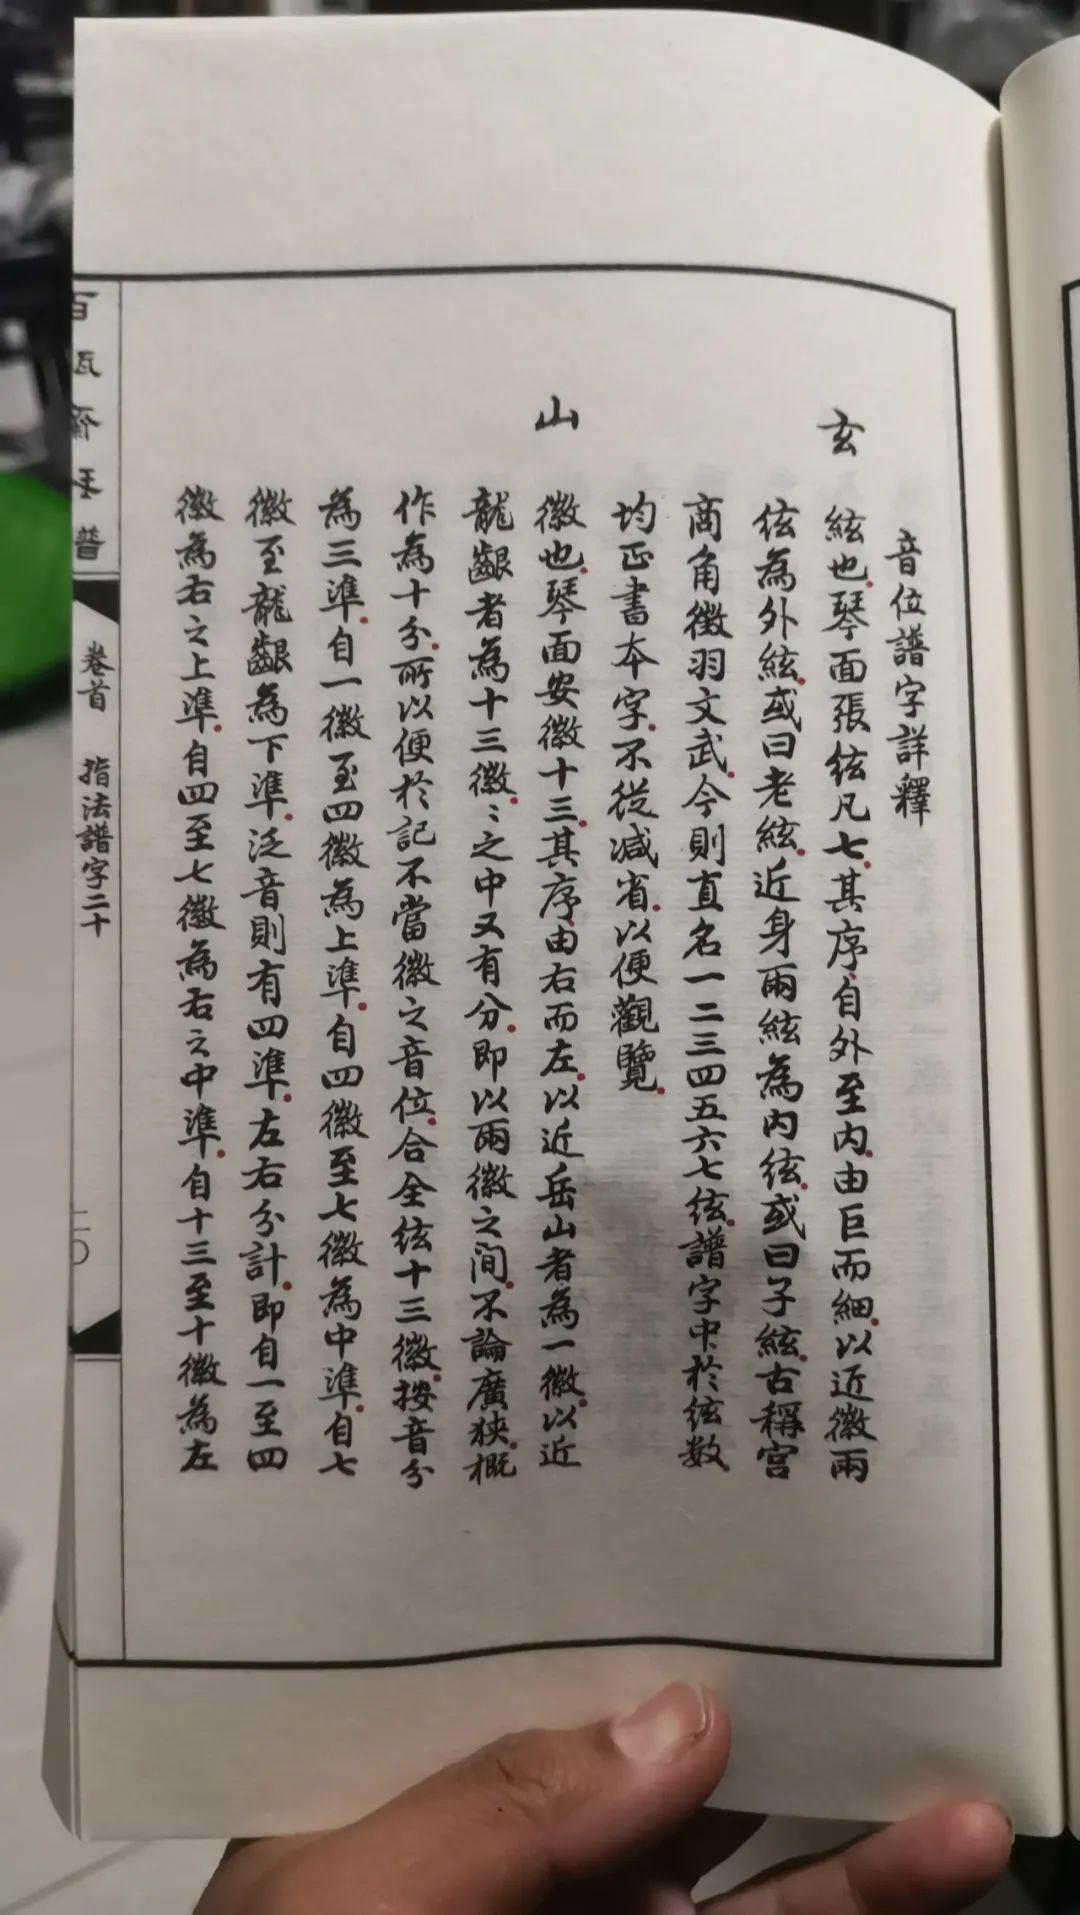 音位譜字詳釋
玄
絃也.琴面張絃凡七.其序.自外至内.由巨而細.以近徽兩
弦為外絃.或曰老絃.近身兩絃為内絃.或曰子絃.古稱宮
商角徵羽文武.今則直名一二三四五六七弦.譜字中於弦数.
均正書本字.不從減省.以便觀覽.
山
徽也.琴面安徽十三.其序.由右而左.以近岳山者為一徽.以近
龍齦者為十三徽.〻之中又有分.即以兩徽之间.不論廣狹.概
作為十分.所以便於記不當徽之音位.合全弦十三徽.按音分
為三準.自一徽至四徽為上準.自四徽至七徽為中準.自七
徽至龍齦為下準.泛音則有四準.左右分計.即自一至四
徽為右之上準.自四至七徽為右之中準.自十三至十徽為左
百瓶齋琴譜
卷首 指法譜字二十
二〇